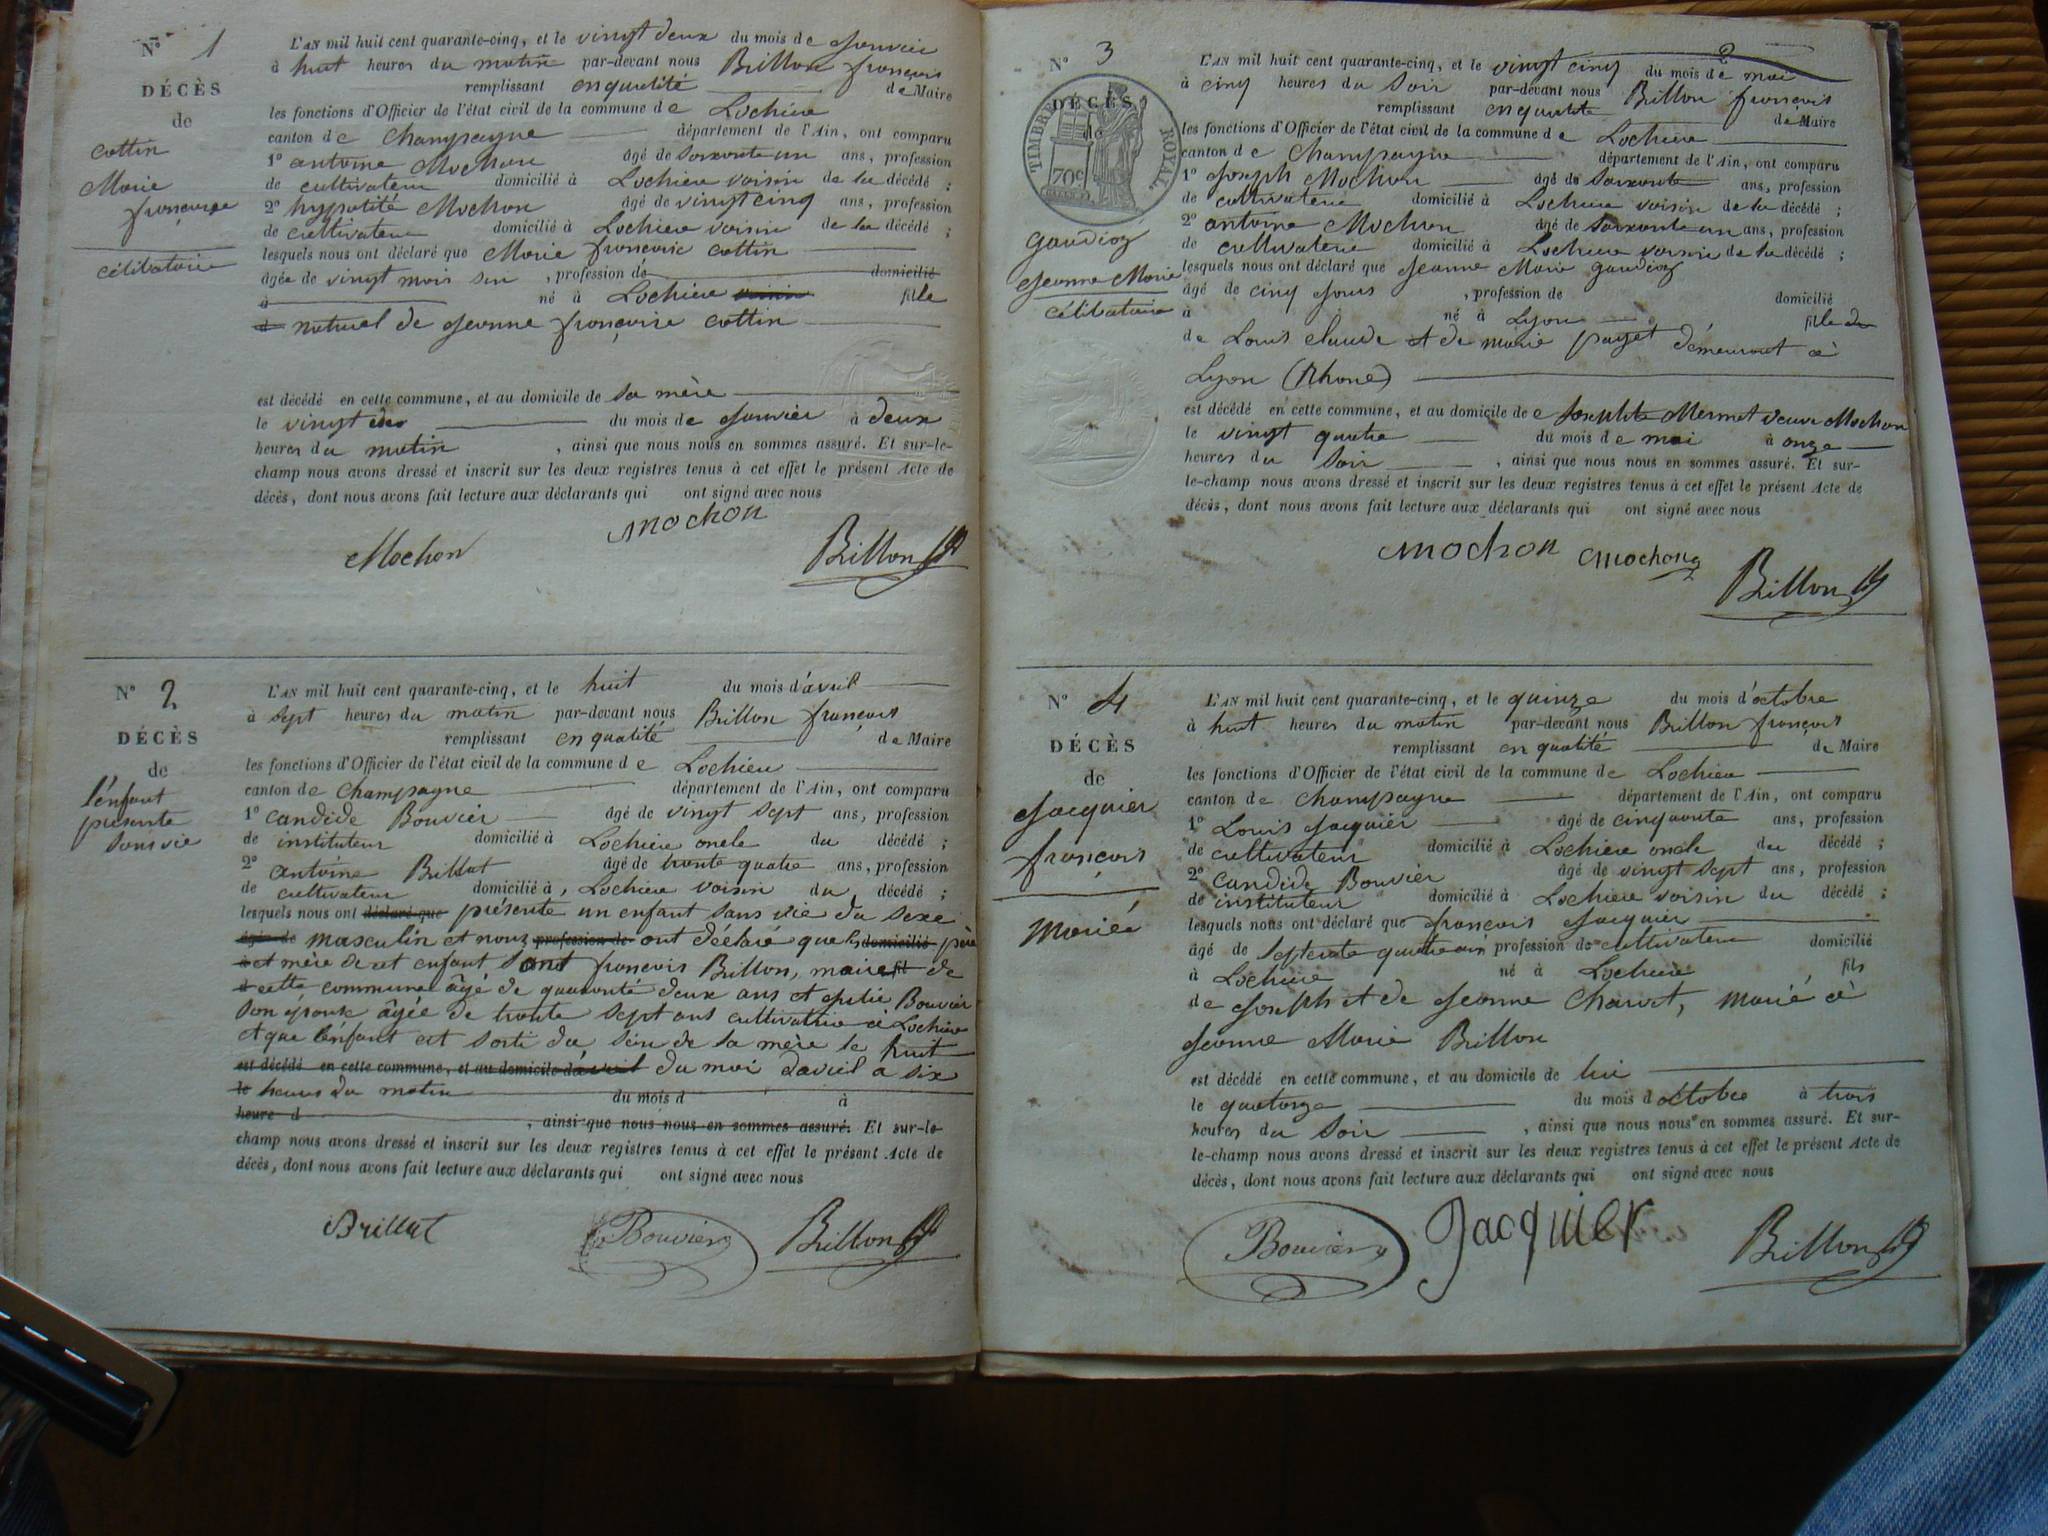 N° 1
DÉCÈS
de
Cottin
Marie
françoise
célibataire
L'AN mil huit cent quarante-cinq, et le vingt deux du mois de Janvier
à huit heures du matin par-devant nous Brillon françois
remplissant en qualité de Maire
les fonctions d'Officier de l'état civil de la commune de Lochieu
canton de Champagne département de l'Ain, ont comparu
1° antoine Mochon âgé de soixante un ans, profession
de cultivateur domicilié à Lochieu voisin de la décédé ;
2° hypolité Mochon âgé de vingt cinq ans, profession
de cultivateur domicilié à Lochieu voisin de la décédé ;
lesquels nous ont déclaré que Marie françoise Cottin
âgée de vingt mois , profession de domicilié
à né à Lochieu voisin fille
d naturel de Jeanne françoise Cottin
est décédé en cette commune, et au domicile de sa mère
le vingt du mois de Janvier à deux
heures du matin , ainsi que nous nous en sommes assuré. Et sur-le-
champ nous avons dressé et inscrit sur les deux registres tenus à cet effet le présent Acte de
décès, dont nous avons fait lecture aux déclarants qui ont signé avec nous
Mochon mochon Brillon
N° 2
DÉCÈS
de
l'enfant
présenté
sans vie
L'AN mil huit cent quarante-cinq, et le huit du mois d'avril
à sept heures du matin par-devant nous Brillon françois
remplissant en qualité de Maire
les fonctions d'Officier de l'état civil de la commune de Lochieu
canton de Champagne département de l'Ain, ont comparu
1° Candide Bouvier âgé de vingt sept ans, profession
de instituteur domicilié à Lochieu oncle du décédé ;
2° antoine Brillat âgé de trente quatre ans, profession
de cultivateur domicilié à Lochieu voisin du décédé ;
lesquels nous ont déclaré que présenté un enfant sans vie du sexe
âgé de masculin et nous profession de ont déclaré que les domicilié père
à et mère de cet enfant sont françois Brillon, maire fil de
d cette commune âgé de quarante deux ans et Julie Bouvier
son épouse âgée de trente sept ans cultivatrice à Lochieu
et que l'enfant est sorti du sein de sa mère le huit
est décédé en cette commune, et au domicile d'avril du moi d'avril a six
le heures du matin du mois d à
heure d , ainsi que nous nous en sommes assuré. Et sur-le-
champ nous avons dressé et inscrit sur les deux registres tenus à cet effet le présent Acte de
décès, dont nous avons fait lecture aux déclarants qui ont signé avec nous
Brillat Bouvier Brillon
2
N° 3
DÉCÈS
de
TIMBRE ROYAL
70c
gaudioz
Jeanne Marie
célibataire
L'AN mil huit cent quarante-cinq, et le vingt cinq du mois de mai
à cinq heures du soir par-devant nous Brillon françois
remplissant en qualité de Maire
les fonctions d'Officier de l'état civil de la commune de Lochieu
canton de Champagne département de l'Ain, ont comparu
1° Joseph Mochon âgé de soixante ans, profession
de cultivateur domicilié à Lochieu voisin de la décédé ;
2° antoine Mochon âgé de soixante un ans, profession
de cultivateur domicilié à Lochieu voisin de la décédé ;
lesquels nous ont déclaré que Jeanne Marie gaudioz
âgé de cinq jours , profession de domicilié
à né à Lyon fille
de Louis claude et de marie payet demeurant à
Lyon (Rhone)
est décédé en cette commune, et au domicile de Josephte Mermet veuve Mochon
le vingt quatre du mois de mai à onze
heures du soir , ainsi que nous nous en sommes assuré. Et sur-
le-champ nous avons dressé et inscrit sur les deux registres tenus à cet effet le présent Acte de
décès, dont nous avons fait lecture aux déclarants qui ont signé avec nous
mochon mochon Brillon
N° 4
DÉCÈS
de
Jacquier
françois
Marié
L'AN mil huit cent quarante-cinq, et le quinze du mois d'octobre
à huit heures du matin par-devant nous Brillon françois
remplissant en qualité de Maire
les fonctions d'Officier de l'état civil de la commune de Lochieu
canton de Champagne département de l'Ain, ont comparu
1° Louis Jacquier âgé de cinquante ans, profession
de cultivateur domicilié à Lochieu oncle du décédé ;
2° Candide Bouvier âgé de vingt sept ans, profession
de instituteur domicilié à Lochieu voisin du décédé ;
lesquels nous ont déclaré que françois Jacquier
âgé de septente quatre ans profession de cultivateur domicilié
à Lochieu né à Lochieu fils
de Joseph et de Jeanne Charvet, marié à
Jeanne Marie Brillon
est décédé en cette commune, et au domicile de lui
le quatorze du mois d octobre à trois
heures du soir , ainsi que nous nous en sommes assuré. Et sur-
le-champ nous avons dressé et inscrit sur les deux registres tenus à cet effet le présent Acte de
décès, dont nous avons fait lecture aux déclarants qui ont signé avec nous
Bouvier Jacquier Brillon